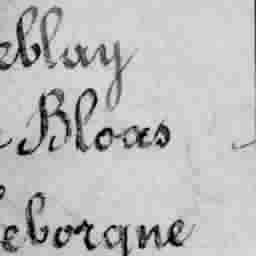 eblay
Bloas
eborgne